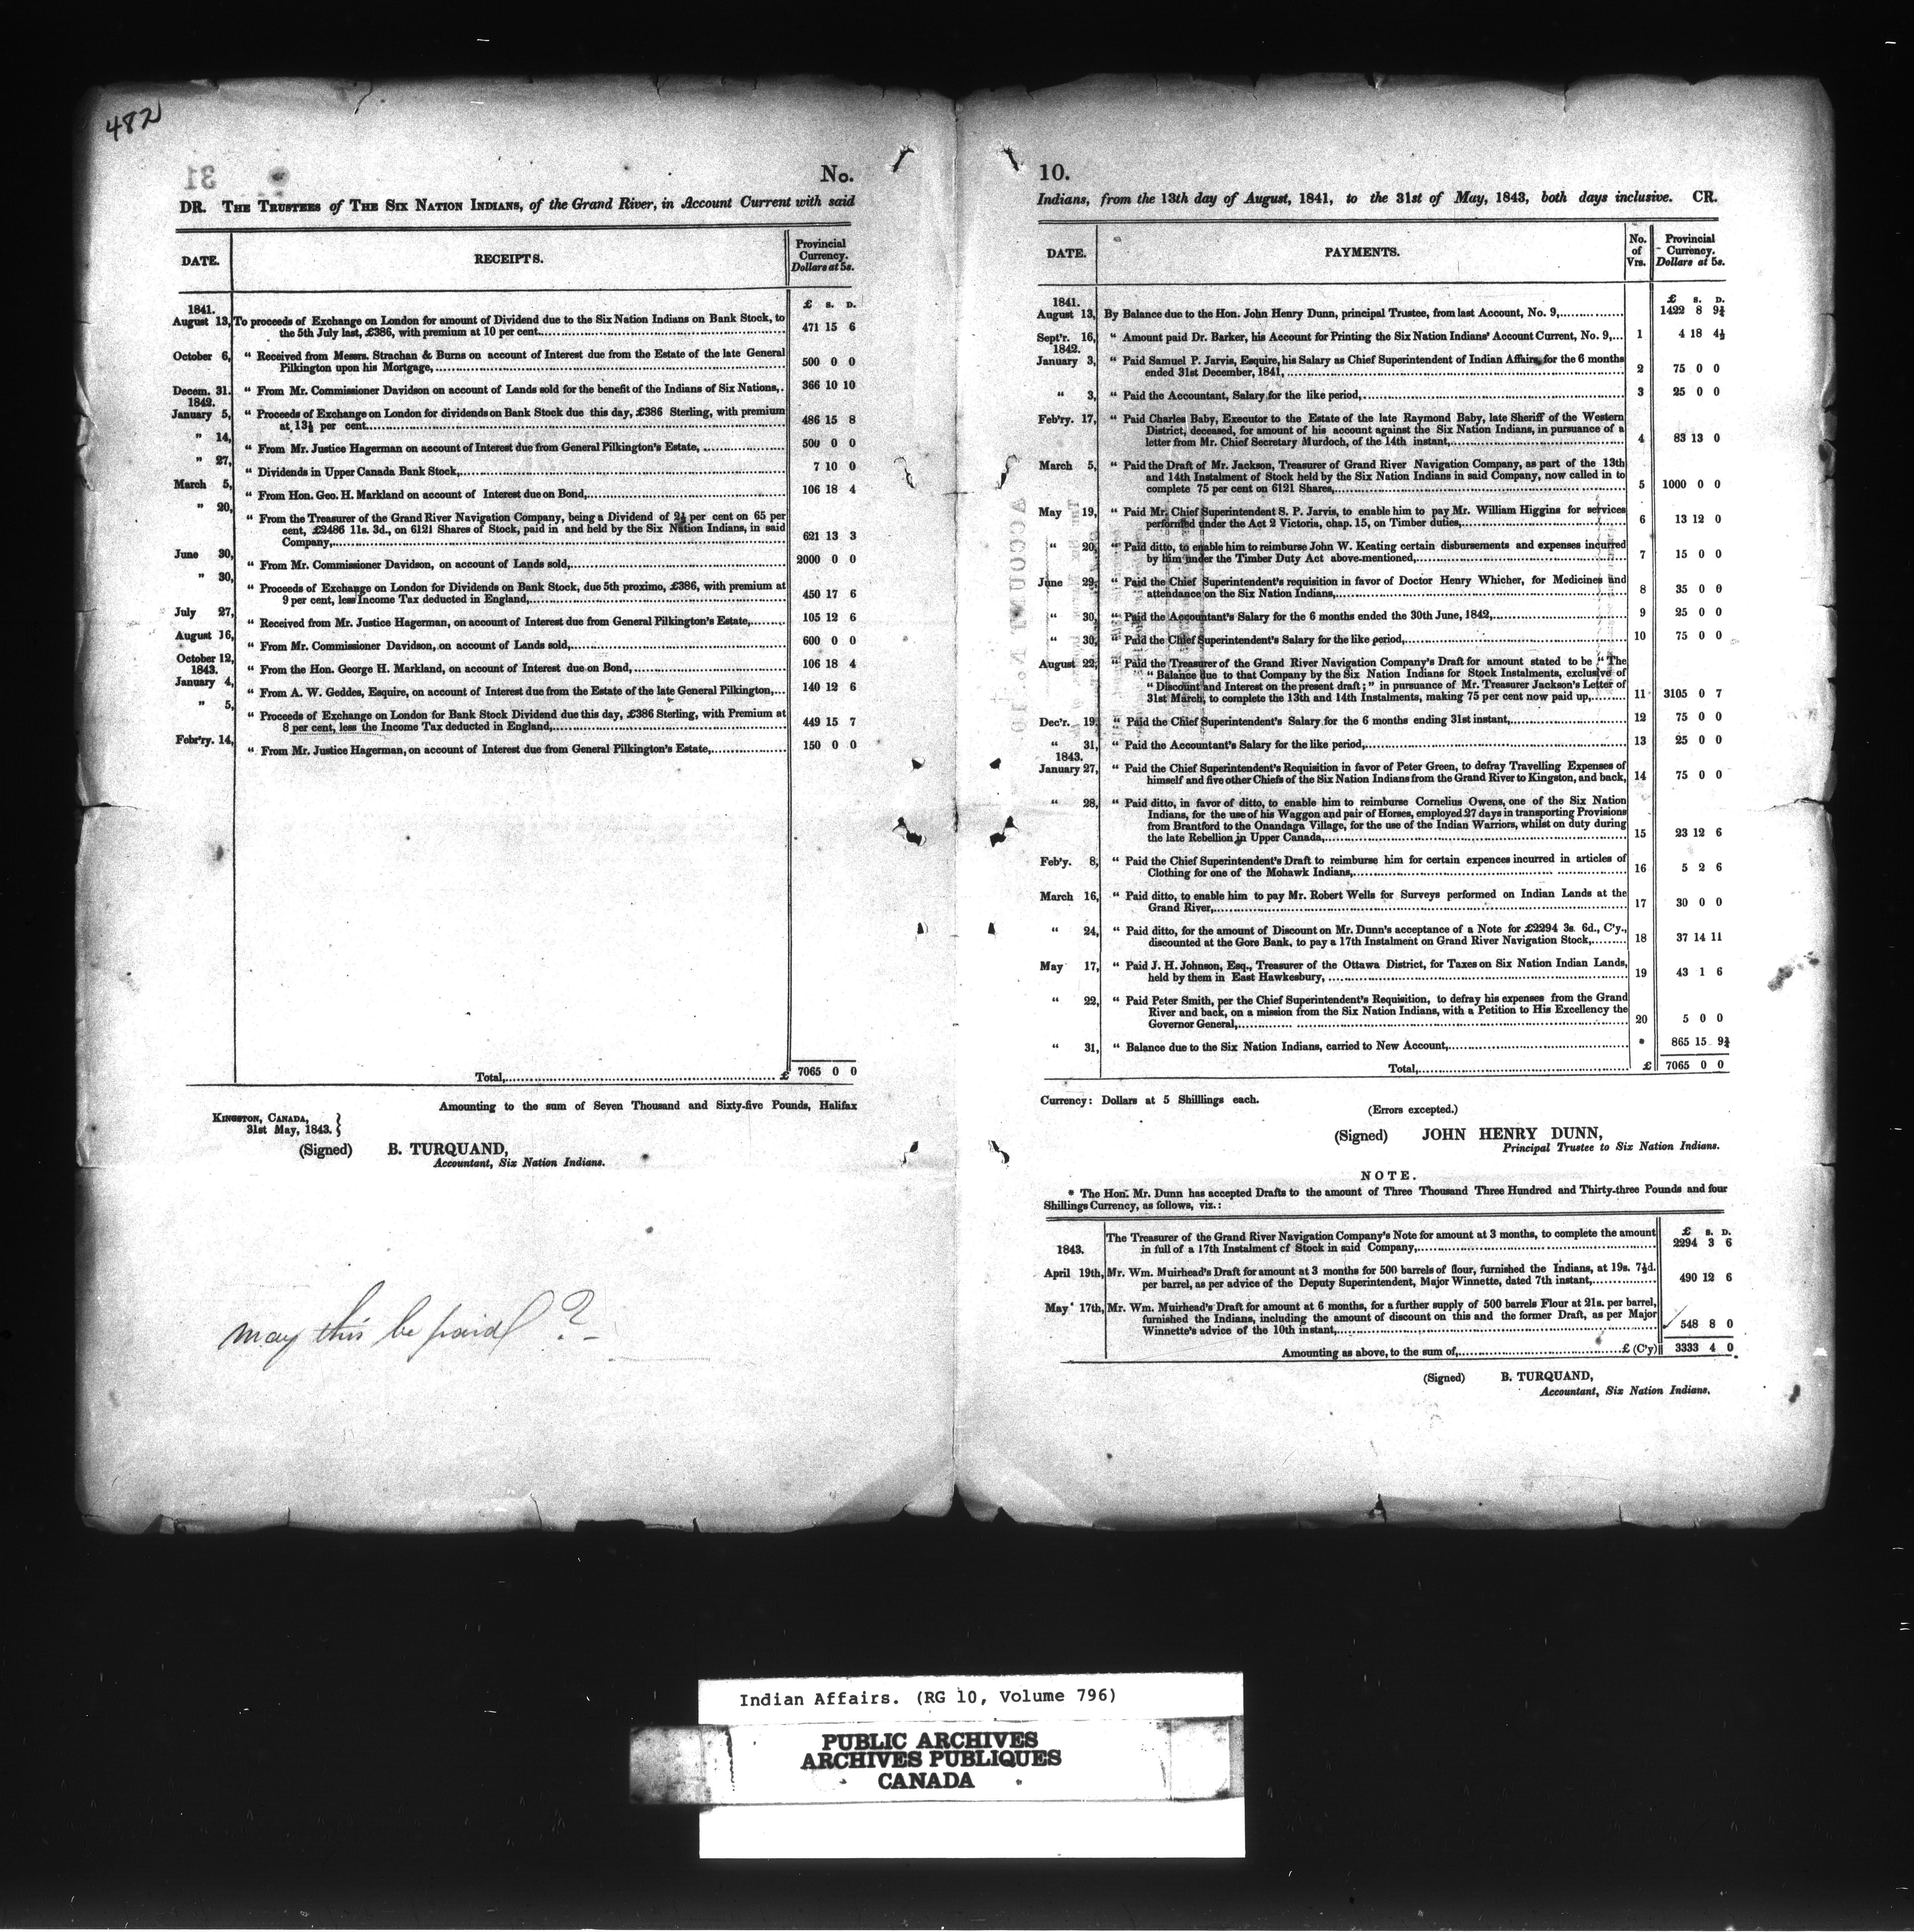 482
31
No.
DR. THE TRUSTEES of THE SIX NATION INDIANS, of the Grand River, in Account Current with said
DATE. RECEIPTS. Provincial Currency. Dollars at 5s.
£ s. D.
1841.
August 13, To proceeds of Exchange on London for amount of Dividend due to the Six Nation Indians on Bank Stock, to
the 5th July last, £386, with premium at 10 per cent. 471 15 6
October 6, “ Received from Messrs. Strachan & Burns on account of Interest due from the Estate of the late General
Pilkington upon his Mortgage, 500 0 0
Decem. 31. “ From Mr. Commissioner Davidson on account of Lands sold for the benefit of the Indians of Six Nations,. 366 10 10
1842.
January 5, “ Proceeds of Exchange on London for dividends on Bank Stock due this day, £386 Sterling, with premium
at 13½ per cent. 486 15 8
” 14, “ From Mr. Justice Hagerman on account of Interest due from General Pilkington's Estate, 500 0 0
” 27, “ Dividends in Upper Canada Bank Stock, 7 10 0
March 5, “ From Hon. Geo. H. Markland on account of Interest due on Bond, 106 18 4
” 20, “ From the Treasurer of the Grand River Navigation Company, being a Dividend of 2½ per cent on 65 per
cent, £2486 11s. 3d., on 6121 Shares of Stock, paid in and held by the Six Nation Indians, in said
Company, 621 13 3
June 30, “ From Mr. Commissioner Davidson, on account of Lands sold, 2000 0 0
” 30, “ Proceeds of Exchange on London for Dividends on Bank Stock, due 5th proximo, £386, with premium at
9 per cent, less Income Tax deducted in England, 450 17 6
July 27, “ Received from Mr. Justice Hagerman, on account of Interest due from General Pilkington's Estate, 105 12 6
August 16, “ From Mr. Commissioner Davidson, on account of Lands sold, 600 0 0
October 12, “ From the Hon. George H. Markland, on account of Interest due on Bond, 106 18 4
1843.
January 4, “ From A. W. Geddes, Esquire, on account of Interest due from the Estate of the late General Pilkington, 140 12 6
” 5, “ Proceeds of Exchange on London for Bank Stock Dividend due this day, £386 Sterling, with Premium at
8 per cent, less the Income Tax deducted in England, 449 15 7
Feb'ry. 14, “ From Mr. Justice Hagerman, on account of Interest due from General Pilkington's Estate, 150 0 0
Total, £ 7065 0 0
Amounting to the sum of Seven Thousand and Sixty-five Pounds, Halifax
KINGSTON, CANADA,
31st May, 1843. }
(Signed) B. TURQUAND,
Accountant, Six Nation Indians.
may this be paid ?
10.
Indians, from the 13th day of August, 1841, to the 31st of May, 1843, both days inclusive. CR.
DATE. PAYMENTS. No. of Vrs. Provincial Currency. Dollars at 5s.
£ s. D.
1841.
August 13, By Balance due to the Hon. John Henry Dunn, principal Trustee, from last Account, No. 9, 1422 8 9¾
Sept'r. 16, “ Amount paid Dr. Barker, his Account for Printing the Six Nation Indians' Account Current, No. 9, 1 4 18 4½
1842.
January 3, “ Paid Samuel P. Jarvis, Esquire, his Salary as Chief Superintendent of Indian Affairs, for the 6 months
ended 31st December, 1841, 2 75 0 0
“ 3, “ Paid the Accountant, Salary for the like period, 3 25 0 0
Feb'ry. 17, “ Paid Charles Baby, Executor to the Estate of the late Raymond Baby, late Sheriff of the Western
District, deceased, for amount of his account against the Six Nation Indians, in pursuance of a
letter from Mr. Chief Secretary Murdoch, of the 14th instant, 4 83 13 0
March 5, “ Paid the Draft of Mr. Jackson, Treasurer of Grand River Navigation Company, as part of the 13th
and 14th Instalment of Stock held by the Six Nation Indians in said Company, now called in to
complete 75 per cent on 6121 Shares, 5 1000 0 0
May 19, “ Paid Mr. Chief Superintendent S. P. Jarvis, to enable him to pay Mr. William Higgins for services
performed under the Act 2 Victoria, chap. 15, on Timber duties, 6 13 12 0
“ 20, “ Paid ditto, to enable him to reimburse John W. Keating certain disbursements and expenses incurred
by him under the Timber Duty Act above-mentioned, 7 15 0 0
June 29, “ Paid the Chief Superintendent's requisition in favor of Doctor Henry Whicher, for Medicines and
attendance on the Six Nation Indians, 8 35 0 0
“ 30, “ Paid the Accountant's Salary for the 6 months ended the 30th June, 1842, 9 25 0 0
“ 30, “ Paid the Chief Superintendent's Salary for the like period, 10 75 0 0
August 22, “ Paid the Treasurer of the Grand River Navigation Company's Draft for amount stated to be “ The
“ Balance due to that Company by the Six Nation Indians for Stock Instalments, exclusive of
“ Discount and Interest on the present draft; ” in pursuance of Mr. Treasurer Jackson's Letter of
31st March, to complete the 13th and 14th Instalments, making 75 per cent now paid up, 11 3105 0 7
Dec'r. 19, “ Paid the Chief Superintendent's Salary for the 6 months ending 31st instant, 12 75 0 0
“ 31, “ Paid the Accountant's Salary for the like period, 13 25 0 0
1843.
January 27, “ Paid the Chief Superintendent's Requisition in favor of Peter Green, to defray Travelling Expenses of
himself and five other Chiefs of the Six Nation Indians from the Grand River to Kingston, and back, 14 75 0 0
“ 28, “ Paid ditto, in favor of ditto, to enable him to reimburse Cornelius Owens, one of the Six Nation
Indians, for the use of his Waggon and pair of Horses, employed 27 days in transporting Provisions
from Brantford to the Onandaga Village, for the use of the Indian Warriors, whilst on duty during
the late Rebellion in Upper Canada, 15 23 12 6
Feb'y. 8, “ Paid the Chief Superintendent's Draft to reimburse him for certain expences incurred in articles of
Clothing for one of the Mohawk Indians, 16 5 2 6
March 16, “ Paid ditto, to enable him to pay Mr. Robert Wells for Surveys performed on Indian Lands at the
Grand River, 17 30 0 0
“ 24, “ Paid ditto, for the amount of Discount on Mr. Dunn's acceptance of a Note for £2294 3s. 6d., C'y.,
discounted at the Gore Bank, to pay a 17th Instalment on Grand River Navigation Stock, 18 37 14 11
May 17, “ Paid J. H. Johnson, Esq., Treasurer of the Ottawa District, for Taxes on Six Nation Indian Lands,
held by them in East Hawkesbury, 19 43 1 6
“ 22, “ Paid Peter Smith, per the Chief Superintendent's Requisition, to defray his expenses from the Grand
River and back, on a mission from the Six Nation Indians, with a Petition to His Excellency the
Governor General, 20 5 0 0
“ 31, “ Balance due to the Six Nation Indians, carried to New Account, * 865 15 9¾
Total, £ 7065 0 0
Currency: Dollars at 5 Shilllings each.
(Errors excepted.)
(Signed) JOHN HENRY DUNN,
Principal Trustee to Six Nation Indians.
NOTE.
* The Hon. Mr. Dunn has accepted Drafts to the amount of Three Thousand Three Hundred and Thirty-three Pounds and four
Shillings Currency, as follows, viz.:
£ s. D.
The Treasurer of the Grand River Navigation Company's Note for amount at 3 months, to complete the amount
1843. in full of a 17th Instalment of Stock in said Company, 2294 3 6
April 19th, Mr. Wm. Muirhead's Draft for amount at 3 months for 500 barrels of flour, furnished the Indians, at 19s. 7½d.
per barrel, as per advice of the Deputy Superintendent, Major Winnette, dated 7th instant, 490 12 6
May 17th, Mr. Wm. Muirhead's Draft for amount at 6 months, for a further supply of 500 barrels Flour at 21s. per barrel,
furnished the Indians, including the amount of discount on this and the former Draft, as per Major
Winnette's advice of the 10th instant, 548 8 0
Amounting as above, to the sum of, £ (C'y) 3333 4 0
(Signed) B. TURQUAND,
Accountant, Six Nation Indians.
Indian Affairs. (RG 10, Volume 796)
PUBLIC ARCHIVES
ARCHIVES PUBLIQUES
CANADA